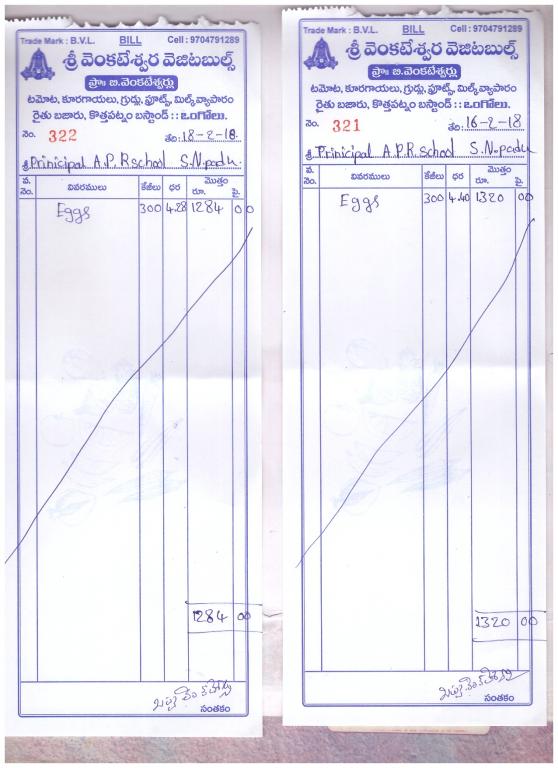 Trade Mark : B.V.L. BILL Cell : 9704791289
శ్రీ వెంకటేశ్వర వెజిటబుల్స్
ప్రొః బి.వెంకటేశ్వర్లు
టమోట, కూరగాయలు, గ్రుడ్లు, ఫ్రూట్స్, మిల్క్ వ్యాపారం
రైతు బజారు, కొత్తపట్నం బస్టాండ్ : : ఒంగోలు.
నెం. 322 తేది : 18-2-18.
శ్రీ Prinicipal A.P.R school S.N.padu.
వ. నెం. వివరములు కేజీలు ధర మొత్తం రూ. పై.
Eggs 300 4.28 1284 00
1284 00
సంతకం
Trade Mark : B.V.L. BILL Cell : 9704791289
శ్రీ వెంకటేశ్వర వెజిటబుల్స్
ప్రొః బి.వెంకటేశ్వర్లు
టమోట, కూరగాయలు, గ్రుడ్లు, ఫ్రూట్స్, మిల్క్ వ్యాపారం
రైతు బజారు, కొత్తపట్నం బస్టాండ్ : : ఒంగోలు.
నెం. 321 తేది : 16-2-18
శ్రీ Prinicipal A.P.R. school S.N.padu
వ. నెం. వివరములు కేజీలు ధర మొత్తం రూ. పై.
Eggs 300 4.40 1320 00
1320 00
సంతకం